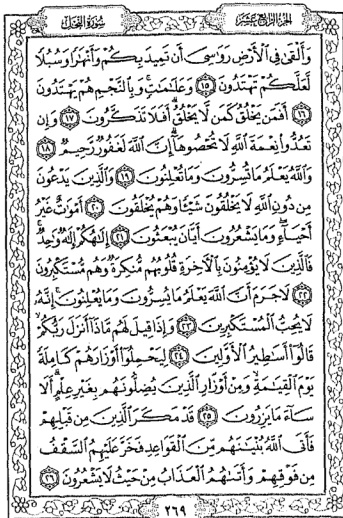 سُورَةُ النَّحْلِ الجُزْءُ الرَّابِعَ عَشَرَ
وَأَلْقَىٰ فِي ٱلْأَرْضِ رَوَٰسِيَ أَن تَمِيدَ بِكُمْ وَأَنْهَٰرًا وَسُبُلًا
لَّعَلَّكُمْ تَهْتَدُونَ ١٥ وَعَلَٰمَٰتٍ ۚ وَبِٱلنَّجْمِ هُمْ يَهْتَدُونَ
١٦ أَفَمَن يَخْلُقُ كَمَن لَّا يَخْلُقُ ۗ أَفَلَا تَذَكَّرُونَ ١٧ وَإِن
تَعُدُّوا۟ نِعْمَةَ ٱللَّهِ لَا تُحْصُوهَآ ۗ إِنَّ ٱللَّهَ لَغَفُورٌ رَّحِيمٌ ١٨
وَٱللَّهُ يَعْلَمُ مَا تُسِرُّونَ وَمَا تُعْلِنُونَ ١٩ وَٱلَّذِينَ يَدْعُونَ
مِن دُونِ ٱللَّهِ لَا يَخْلُقُونَ شَيْـًٔا وَهُمْ يُخْلَقُونَ ٢٠ أَمْوَٰتٌ غَيْرُ
أَحْيَآءٍ ۖ وَمَا يَشْعُرُونَ أَيَّانَ يُبْعَثُونَ ٢١ إِلَٰهُكُمْ إِلَٰهٌ وَٰحِدٌ ۚ
فَٱلَّذِينَ لَا يُؤْمِنُونَ بِٱلْـَٔاخِرَةِ قُلُوبُهُم مُّنكِرَةٌ وَهُم مُّسْتَكْبِرُونَ
٢٢ لَا جَرَمَ أَنَّ ٱللَّهَ يَعْلَمُ مَا يُسِرُّونَ وَمَا يُعْلِنُونَ ۚ إِنَّهُۥ
لَا يُحِبُّ ٱلْمُسْتَكْبِرِينَ ٢٣ وَإِذَا قِيلَ لَهُم مَّاذَآ أَنزَلَ رَبُّكُمْ ۙ
قَالُوٓا۟ أَسَٰطِيرُ ٱلْأَوَّلِينَ ٢٤ لِيَحْمِلُوٓا۟ أَوْزَارَهُمْ كَامِلَةً
يَوْمَ ٱلْقِيَٰمَةِ ۙ وَمِنْ أَوْزَارِ ٱلَّذِينَ يُضِلُّونَهُم بِغَيْرِ عِلْمٍ ۗ أَلَا
سَآءَ مَا يَزِرُونَ ٢٥ قَدْ مَكَرَ ٱلَّذِينَ مِن قَبْلِهِمْ
فَأَتَى ٱللَّهُ بُنْيَٰنَهُم مِّنَ ٱلْقَوَاعِدِ فَخَرَّ عَلَيْهِمُ ٱلسَّقْفُ
مِن فَوْقِهِمْ وَأَتَىٰهُمُ ٱلْعَذَابُ مِنْ حَيْثُ لَا يَشْعُرُونَ ٢٦
٢٦٩